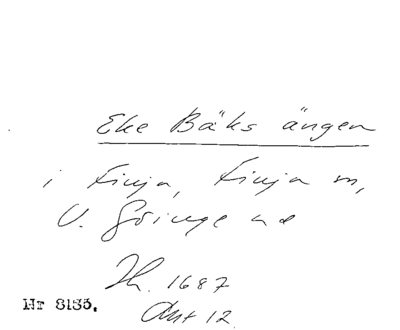 Eke Bäks ängen
i Finja, Finja sn,
V. Göinge hd
Jh. 1687
Ant 12.
Nr 8135.